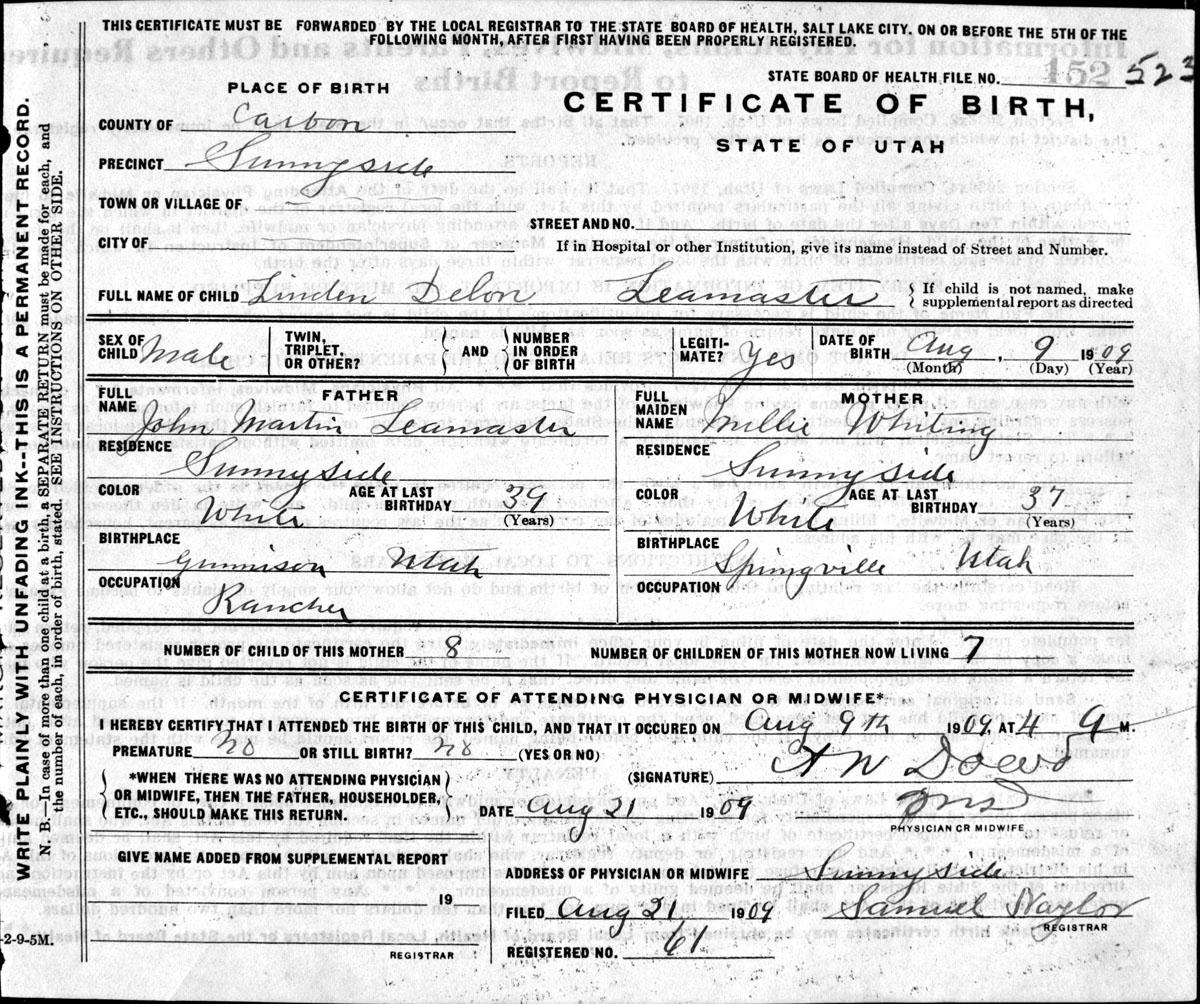 THIS CERTIFICATE MUST BE FORWARDED BY THE LOCAL REGISTRAR TO THE STATE BOARD OF HEALTH, SALT LAKE CITY, ON OR BEFORE THE 5TH OF THE
FOLLOWING MONTH, AFTER FIRST HAVING BEEN PROPERLY REGISTERED.
WRITE PLAINLY WITH UNFADING INK--THIS IS A PERMANENT RECORD.
N. B.—In case of more than one child at a birth, a SEPARATE RETURN must be made for each, and
the number of each, in order of birth, stated. SEE INSTRUCTIONS ON OTHER SIDE.
STATE BOARD OF HEALTH FILE NO. 152 523
PLACE OF BIRTH
CERTIFICATE OF BIRTH,
STATE OF UTAH
COUNTY OF Carbon
PRECINCT Sunnyside
TOWN OR VILLAGE OF
STREET AND NO.
CITY OF
If in Hospital or other Institution, give its name instead of Street and Number.
FULL NAME OF CHILD Linden Delon Leamaster
{ If child is not named, make
supplemental report as directed
SEX OF CHILD Male
TWIN, TRIPLET, OR OTHER?
AND
NUMBER IN ORDER OF BIRTH
LEGITIMATE? Yes
DATE OF BIRTH Aug, 9 1909
(Month) (Day) (Year)
FATHER
FULL NAME John Martin Leamaster
RESIDENCE Sunnyside
COLOR White
AGE AT LAST BIRTHDAY 39
(Years)
BIRTHPLACE Gunnison Utah
OCCUPATION Rancher
MOTHER
FULL MAIDEN NAME Millie Whiting
RESIDENCE Sunnyside
COLOR White
AGE AT LAST BIRTHDAY 37
(Years)
BIRTHPLACE Springville Utah
OCCUPATION
NUMBER OF CHILD OF THIS MOTHER 8
NUMBER OF CHILDREN OF THIS MOTHER NOW LIVING 7
CERTIFICATE OF ATTENDING PHYSICIAN OR MIDWIFE*
I HEREBY CERTIFY THAT I ATTENDED THE BIRTH OF THIS CHILD, AND THAT IT OCCURED ON Aug 9th 1909, AT 4 a M.
PREMATURE no OR STILL BIRTH? no (YES OR NO)
*WHEN THERE WAS NO ATTENDING PHYSICIAN
OR MIDWIFE, THEN THE FATHER, HOUSEHOLDER,
ETC., SHOULD MAKE THIS RETURN.
(SIGNATURE) A W Dowd
DATE Aug 21 1909
MD
PHYSICIAN OR MIDWIFE
GIVE NAME ADDED FROM SUPPLEMENTAL REPORT
19
REGISTRAR
ADDRESS OF PHYSICIAN OR MIDWIFE Sunnyside
FILED Aug 21 1909 Samuel Naylor
REGISTRAR
REGISTERED NO. 61
-2-9-5M.